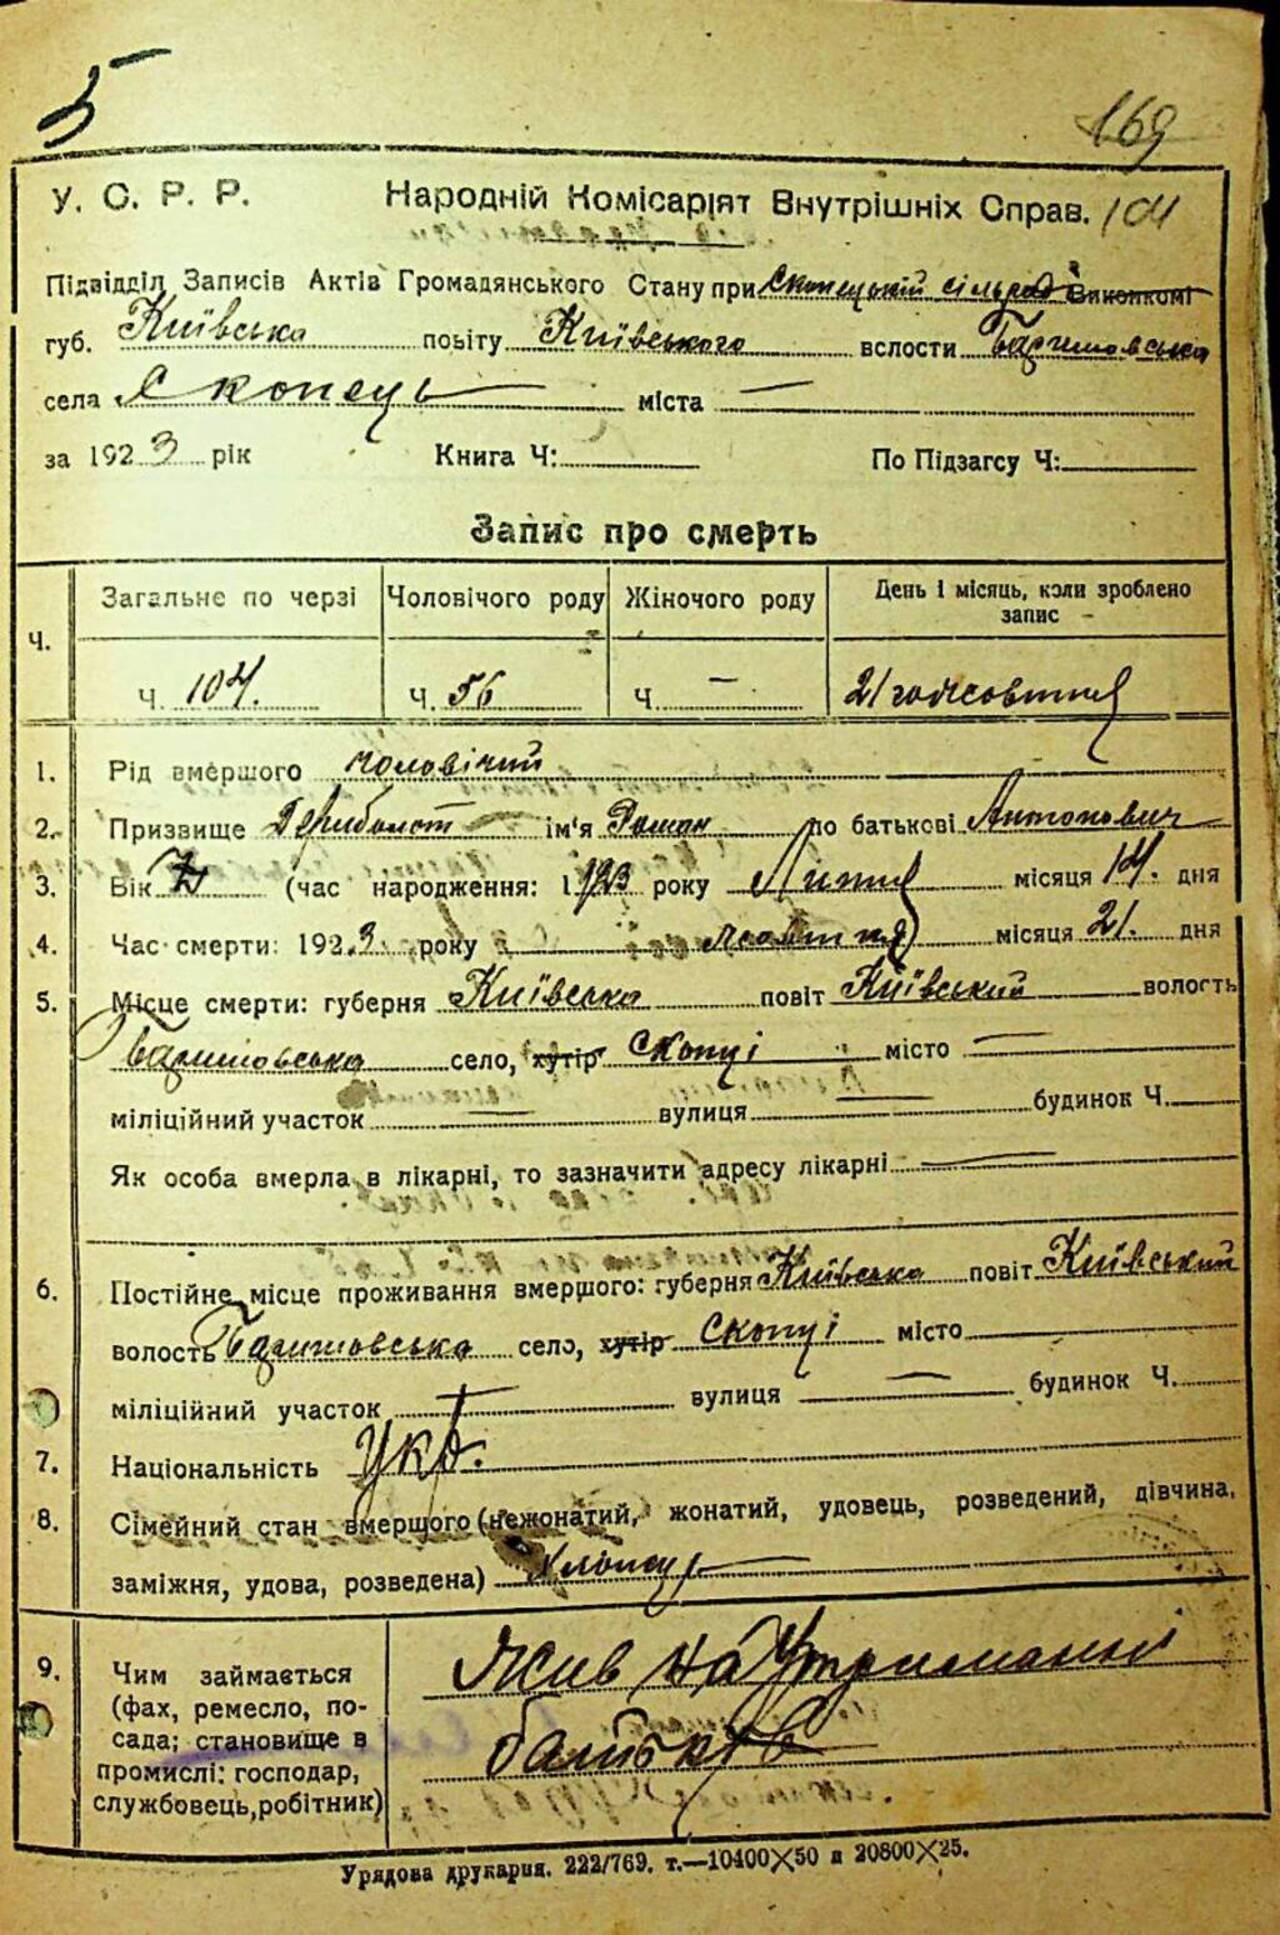 5
169
У. С. Р. Р. Народній Комісаріят Внутрішніх Справ. 104
Підвідділ Записів Актів Громадянського Стану при Скопецькій сільраді Виконкомі
губ. Київська повіту Київського волости Баришовська
села Скопець міста —
за 1923 рік Книга Ч: По Підзагсу Ч:
Запис про смерть
Ч. Загальне по черзі Чоловічого роду Жіночого роду День і місяць, коли зроблено запис
Ч. 104. Ч. 56 Ч. — 21 жовтня
1. Рід вмершого чоловічий
2. Призвище ім'я Роман по батькові Антонович
3. Вік (час народження: 1923 року Липня місяця 14. дня
4. Час смерти: 1923 року жовтня місяця 21. дня
5. Місце смерти: губерня Київська повіт Київський волость
Баришовська село, хутір Скопці місто —
міліційний участок — вулиця — будинок Ч.
Як особа вмерла в лікарні, то зазначити адресу лікарні —
6. Постійне місце проживання вмершого: губерня Київська повіт Київський
волость Баришовська село, хутір Скопці місто
міліційний участок — вулиця — будинок Ч.
7. Національність Укр.
8. Сімейний стан вмершого (нежонатий, жонатий, удовець, розведений, дівчина,
заміжня, удова, розведена) Хлопець
9. Чим займається
(фах, ремесло, по-
сада; становище в
промислі: господар,
службовець, робітник)
Жив на Утриманні
батьків
Урядова друкарня. 222/769. т.—10400×50 и 20800×25.